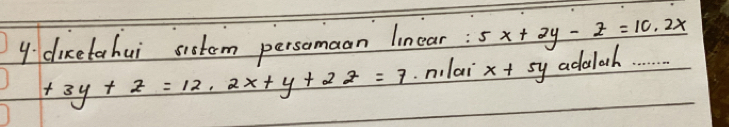 4. diketahui sistem persamaan linear : 5x + 2y - z = 10. 2x
+ 3y + z = 12. 2x + y + 2z = 7. nilai x + 5y adalah ........